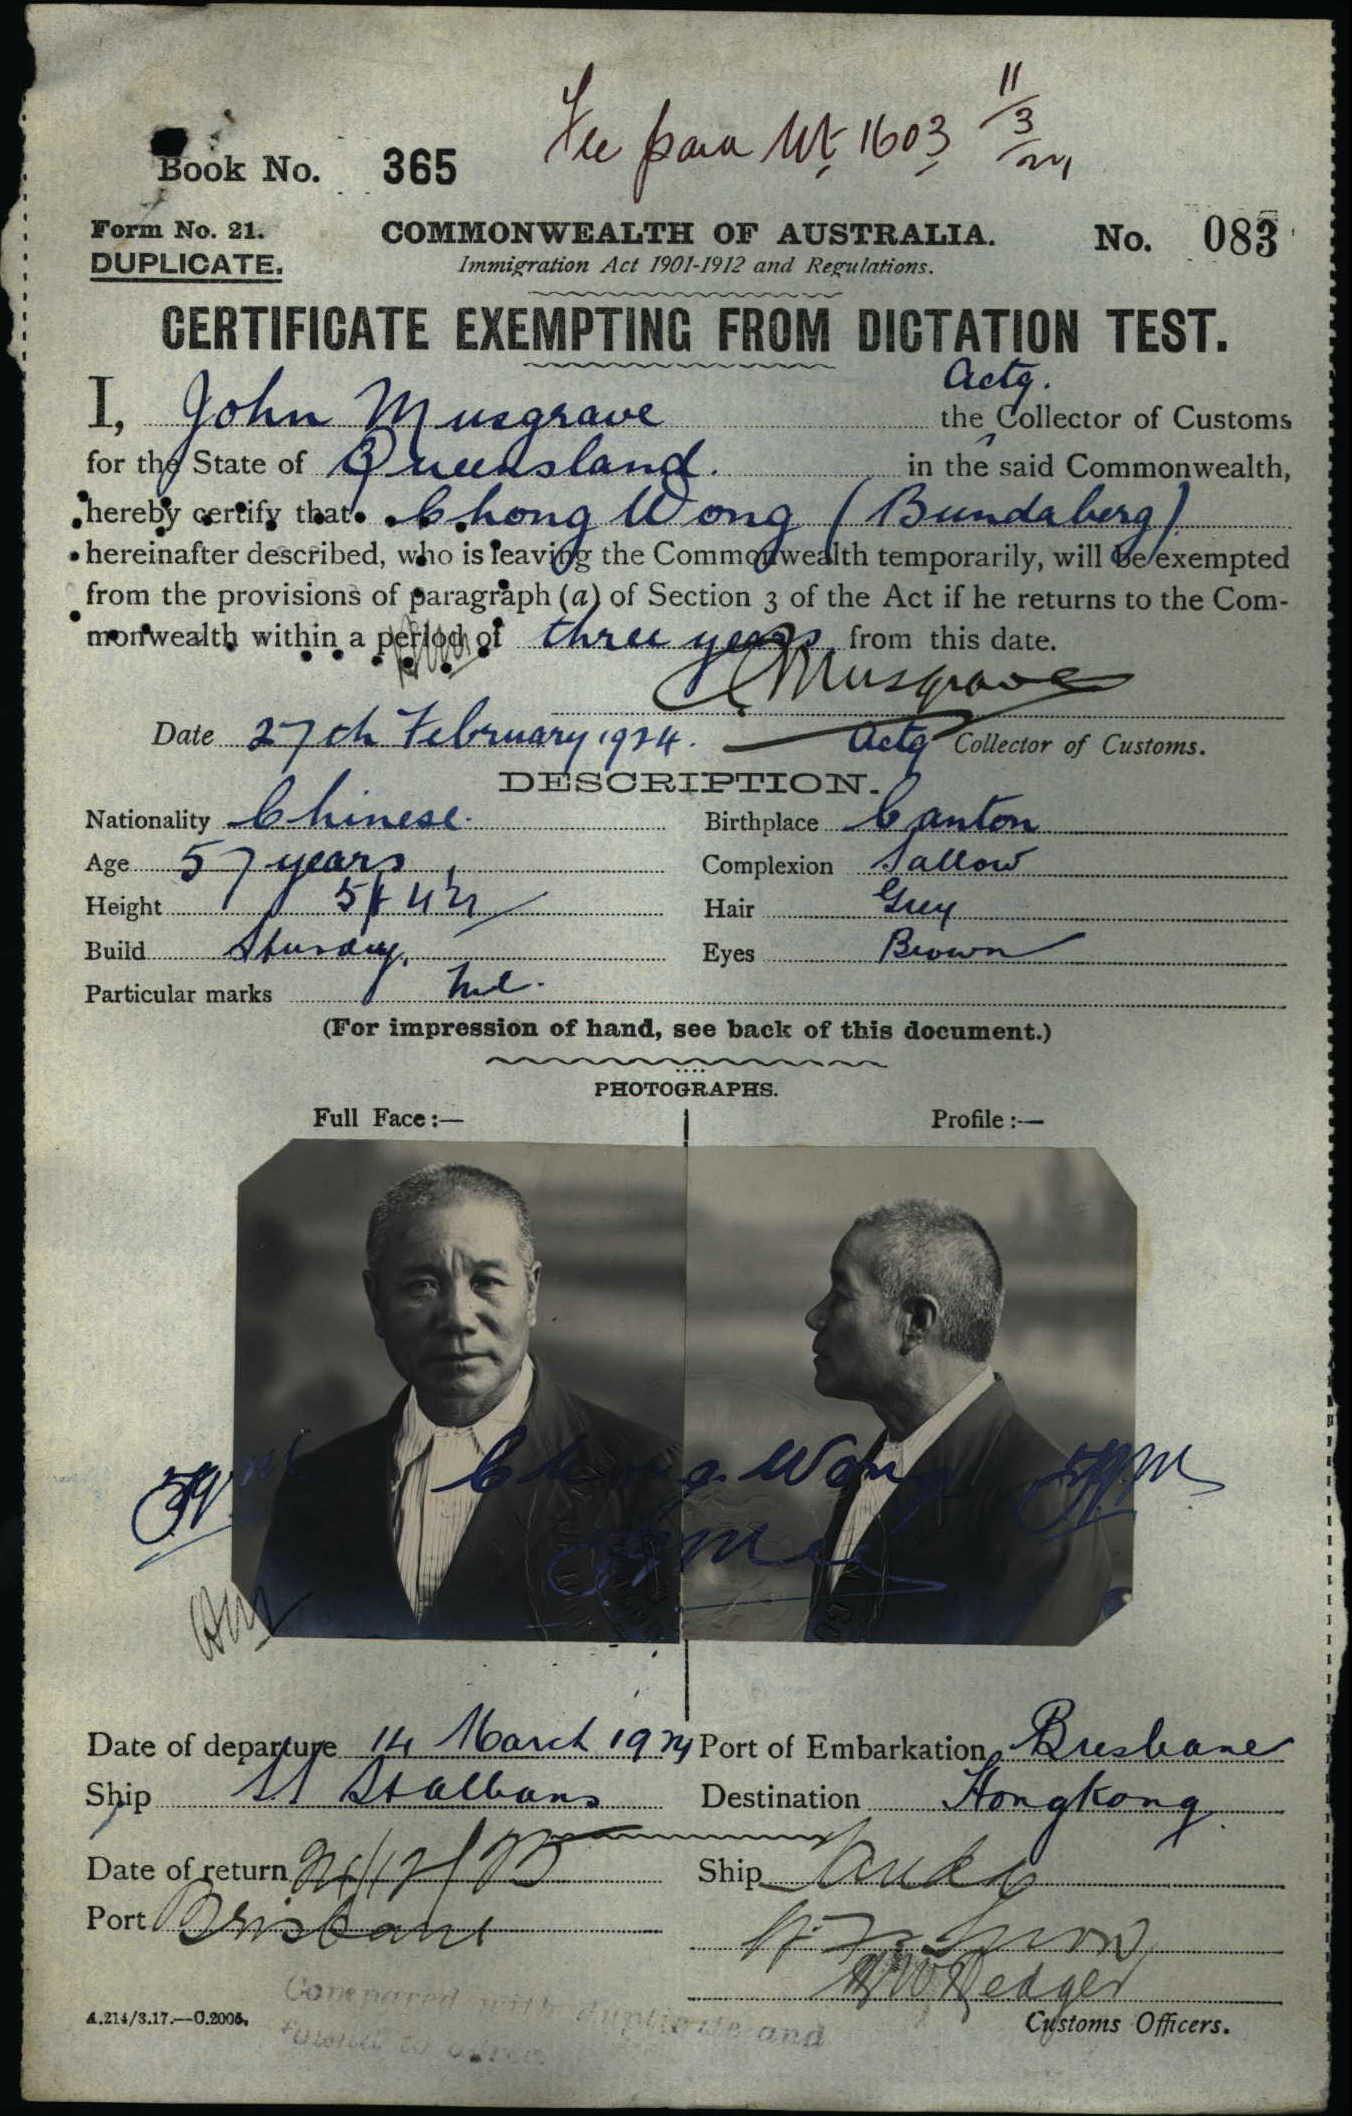 Fee para Wt 1603 11/3/24
Book No. 365
Form No. 21.
DUPLICATE.
COMMONWEALTH OF AUSTRALIA.
No. 083
Immigration Act 1901-1912 and Regulations.
CERTIFICATE EXEMPTING FROM DICTATION TEST.
I, John Musgrave the Actg. Collector of Customs
for the State of Queensland. in the said Commonwealth,
hereby certify that Chong Wong (Bundaberg)
hereinafter described, who is leaving the Commonwealth temporarily, will be exempted
from the provisions of paragraph (a) of Section 3 of the Act if he returns to the Com-
monwealth within a period of three years from this date.
Musgrave
Date 27th February 1924. Actg Collector of Customs.
DESCRIPTION.
Nationality Chinese. Birthplace Canton
Age 57 years Complexion Sallow
Height 5ft 4in Hair Grey
Build Sturdy. Eyes Brown
Particular marks Nil.
(For impression of hand, see back of this document.)
PHOTOGRAPHS.
Full Face:— Profile:—
Chong Wong
Date of departure 14 March 1924 Port of Embarkation Brisbane
Ship SS St Albans Destination Hongkong
Date of return Ship
Port Brisbane
A.214/3.17.—C.2005.
Customs Officers.
Compared with duplicate and
found to agree